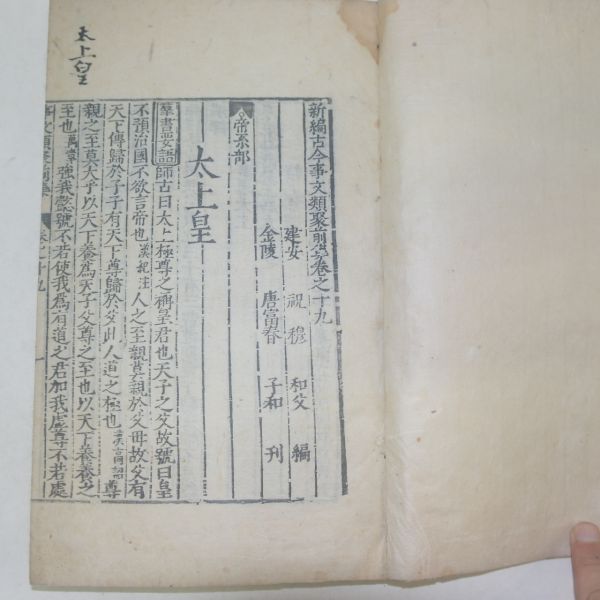 太上皇
新編古今事文類聚前集卷之十九
建安 祝穆 和父 編
金陵 唐富春 子和 刊
帝系部
太上皇
羣書要語師古曰太上極尊之稱皇君也天子之父故號曰皇
不預治國不欲言帝也漢紀注人之至親莫親於父母故父有
天下傳歸於子子有天下尊歸於父此人道之極也漢高詔尊
親之至莫大乎以天下養為天子父尊之至也以天下養養之
至也萬章強我懿號不若使我為有道之君加我虛尊不若處
事文類聚前集 卷之十九 一